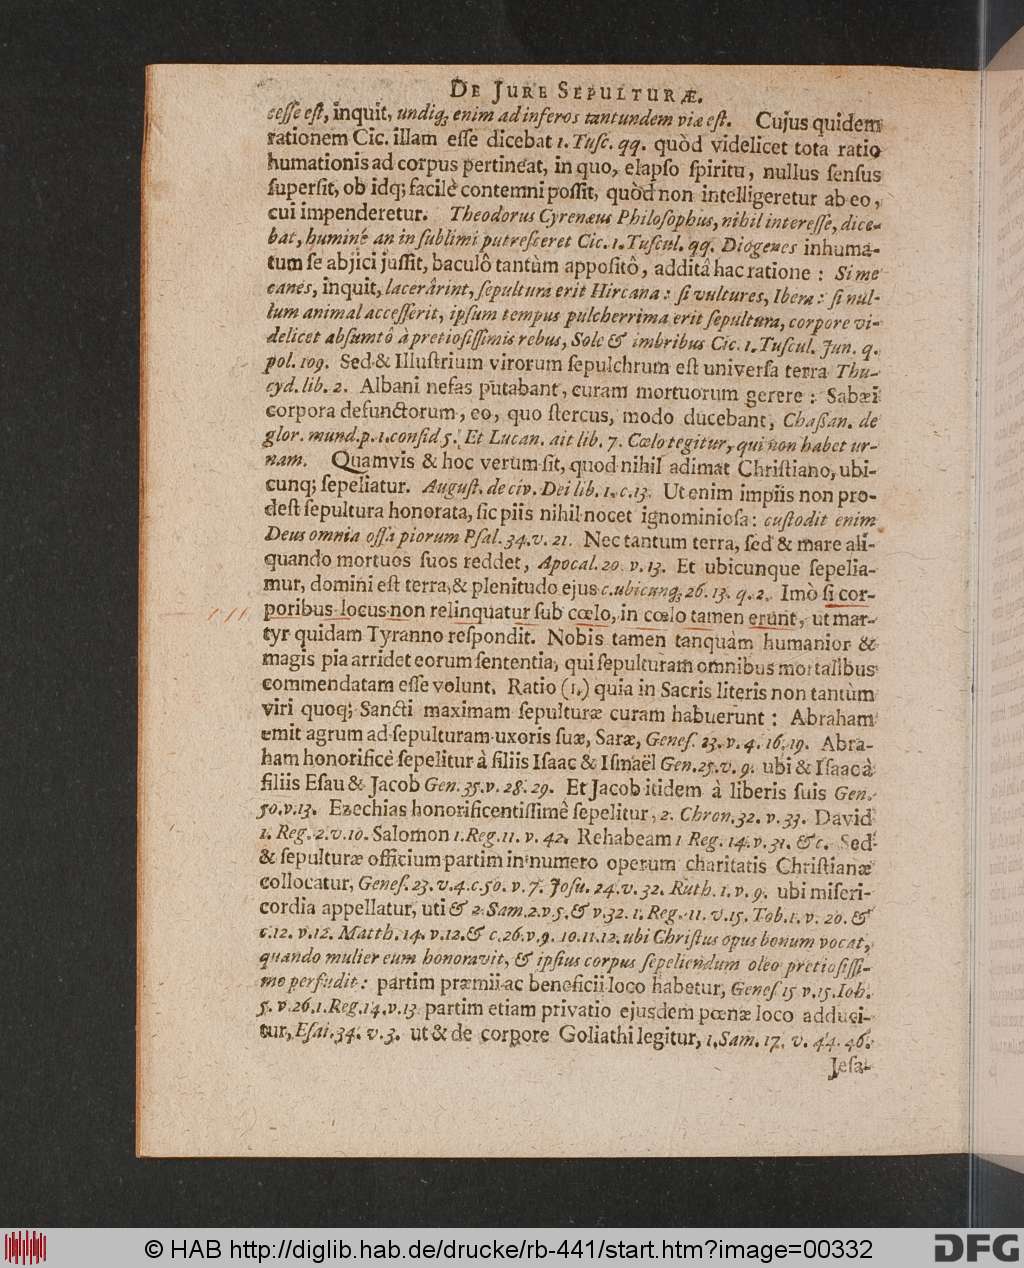 DE JURE SEPULTURÆ.
cesse est, inquit, undiq; enim ad inferos tantundem viæ est. Cujus quidem
rationem Cic. illam esse dicebat 1. Tusc. qq. quòd videlicet tota ratio
humationis ad corpus pertineat, in quo, elapso spiritu, nullus sensus
supersit, ob idq; facilè contemni possit, quòd non intelligeretur ab eo,
cui impenderetur. Theodorus Cyrenæus Philosophus, nihil interesse, dice-
bat, huminé an in sublimi putresceret Cic. 1. Tuscul. qq. Diogenes inhuma-
tum se abjici jussit, baculô tantùm appositô, additâ hac ratione : Si me
canes, inquit, lacerârint, sepultura erit Hircana : si vultures, Ibera : si nul-
lum animal accesserit, ipsum tempus pulcherrima erit sepultura, corpore vi-
delicet absumtô à pretiosissimis rebus, Sole & imbribus Cic. 1. Tuscul. Jun. q.
pol. 109. Sed & Illustrium virorum sepulchrum est universa terra Thu-
cyd. lib. 2. Albani nefas putabant, curam mortuorum gerere : Sabæi
corpora defunctorum, eo, quo stercus, modo ducebant, Chaßan. de
glor. mund. p. 1. consid 5. Et Lucan. ait lib. 7. Cœlo tegitur, qui non habet ur-
nam. Quamvis & hoc verum sit, quod nihil adimat Christiano, ubi-
cunq; sepeliatur. August. de civ. Dei lib. 1. c. 13. Ut enim impiis non pro-
dest sepultura honorata, sic piis nihil nocet ignominiosa : custodit enim
Deus omnia ossa piorum Psal. 34. v. 21. Nec tantum terra, sed & mare ali-
quando mortuos suos reddet, Apocal. 20. v. 13. Et ubicunque sepelia-
mur, domini est terra, & plenitudo ejus c. ubicunq; 26. 13. q. 2. Imò si cor-
poribus locus non relinquatur sub cœlo, in cœlo tamen erunt, ut mar-
tyr quidam Tyranno respondit. Nobis tamen tanquàm humanior &
magis pia arridet eorum sententia, qui sepulturam omnibus mortalibus
commendatam esse volunt. Ratio (1.) quia in Sacris literis non tantùm
viri quoq; Sancti maximam sepulturæ curam habuerunt : Abraham
emit agrum ad sepulturam uxoris suæ, Saræ, Genes. 23. v. 4. 16. 19. Abra-
ham honorificè sepelitur à filiis Isaac & Ismaël Gen. 25. v. 9. ubi & Isaac à
filiis Esau & Jacob Gen. 35. v. 28. 29. Et Jacob itidem à liberis suis Gen.
50. v. 13. Ezechias honorificentissimè sepelitur, 2. Chron. 32. v. 33. David
1. Reg. 2. v. 10. Salomon 1. Reg. 11. v. 42. Rehabeam 1 Reg. 14. v. 31. &c. Sed
& sepulturæ officium partim in numero operum charitatis Christianæ
collocatur, Genes. 23. v. 4. c. 50. v. 7. Josu. 24. v. 32. Ruth. 1. v. 9. ubi miseri-
cordia appellatur, uti & 2. Sam. 2. v. 5. & v. 32. 1. Reg. 11. v. 15. Tob. 1. v. 20. &
c. 12. v. 12. Matth. 14. v. 12. & c. 26. v. 9. 10. 11. 12. ubi Christus opus bonum vocat,
quando mulier eum honoravit, & ipsius corpus sepeliendum oleo pretiosissi-
mo perfudit : partim præmii ac beneficii loco habetur, Genes 15 v. 15. Iob.
5. v. 26. 1. Reg. 14. v. 13. partim etiam privatio ejusdem pœnæ loco adduci-
tur, Esai. 34. v. 3. ut & de corpore Goliathi legitur, 1. Sam. 17. v. 44. 46.
Jesa-
© HAB http://diglib.hab.de/drucke/rb-441/start.htm?image=00332
DFG